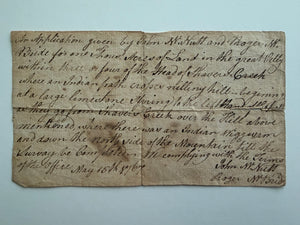 An Application given by John McNutt and Roger Mc
Bride for one Thous. Acres of Land in the great Vally
within three or four of the Head of Shavers Creek
where an Indian path crosses a lying hill begening
at a large limestone Spring to the left hand
as they go from Shavers Creek over the Hill above
mentioned where there was an Indian
and down the North side of the Mountain till the
Survay be Compleated complying with the Terms
of the Office May 15th
John McNutt
Roger McBrid